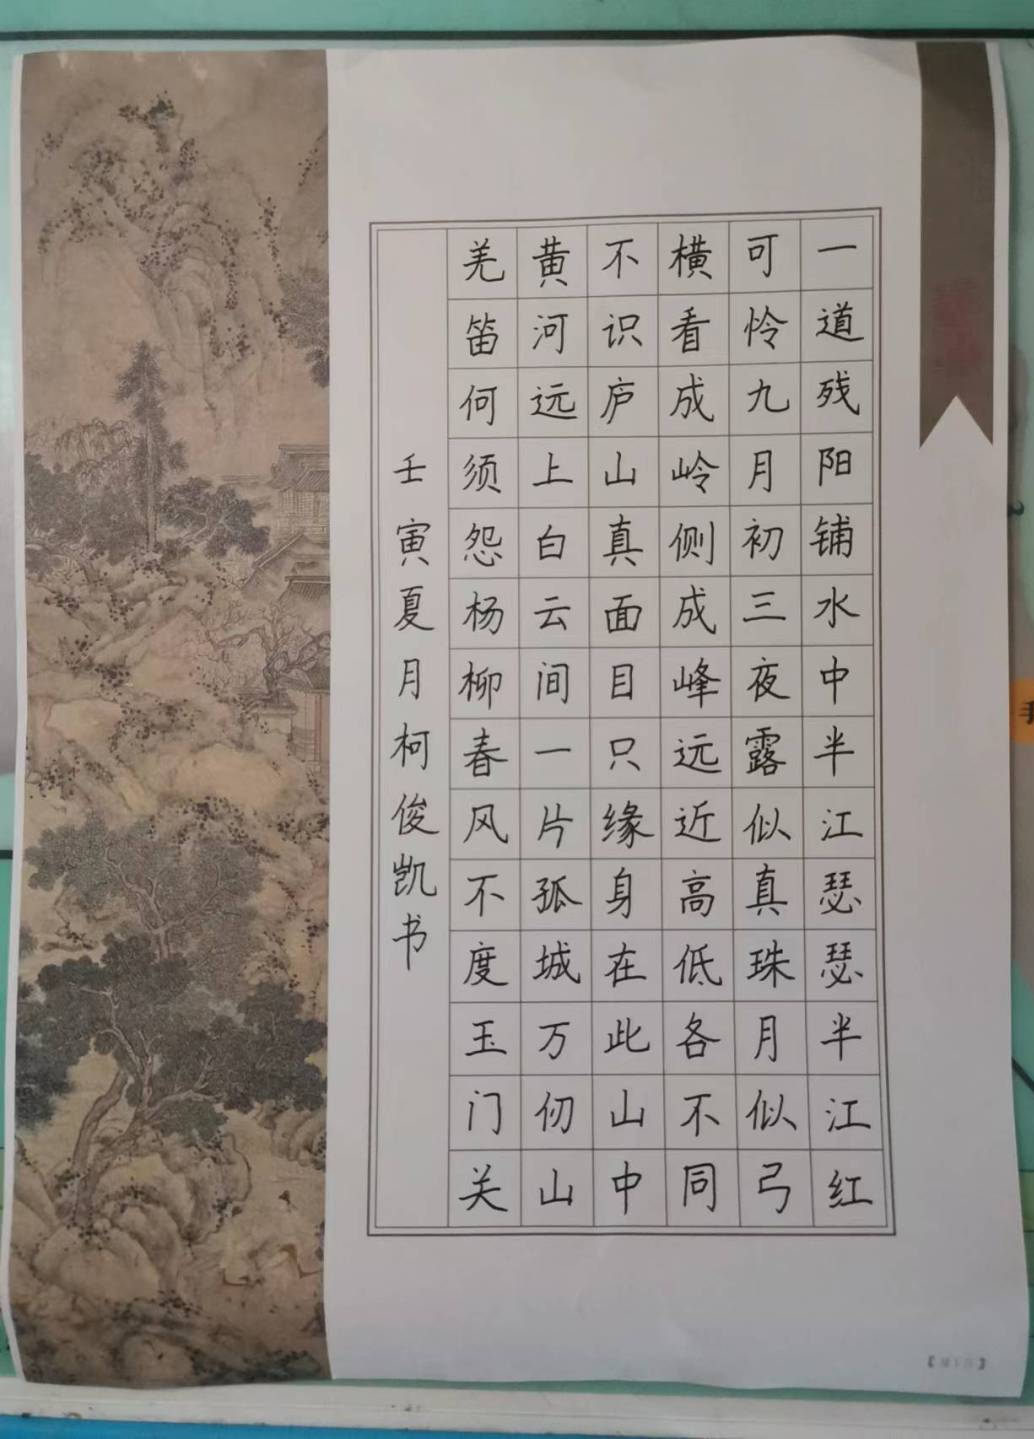 一道残阳铺水中半江瑟瑟半江红
可怜九月初三夜露似真珠月似弓
横看成岭侧成峰远近高低各不同
不识庐山真面目只缘身在此山中
黄河远上白云间一片孤城万仞山
羌笛何须怨杨柳春风不度玉门关
壬寅夏月柯俊凯书